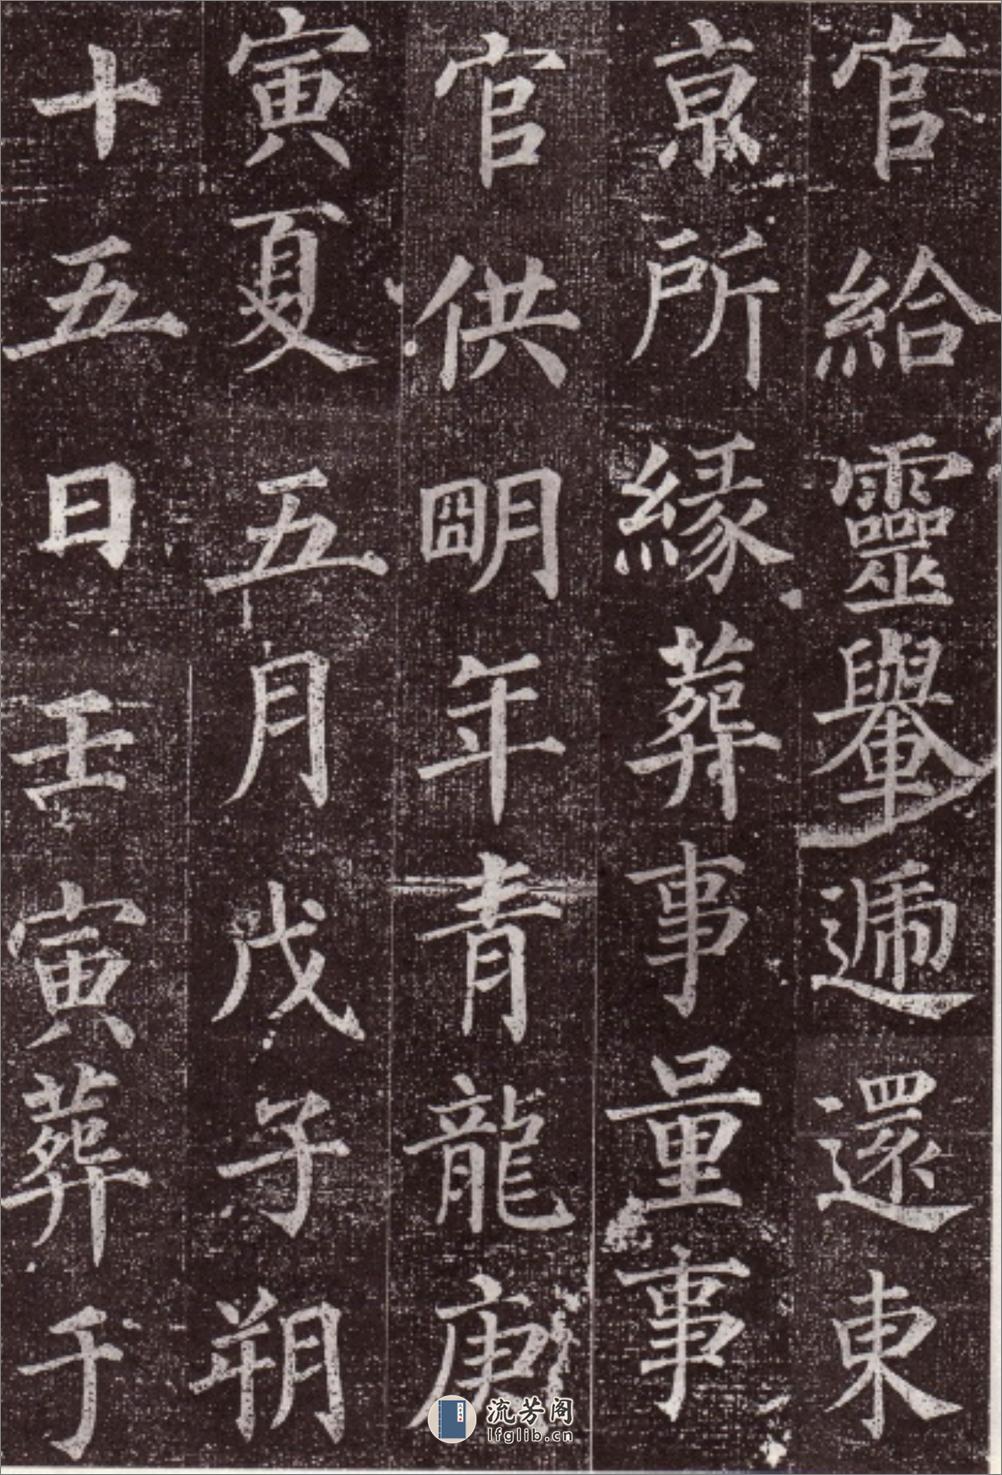 官給靈轝遞還東
京所緣葬事量事
官供明年青龍庚
寅夏五月戊子朔
十五日壬寅葬于
流芳阁
lfglib.cn